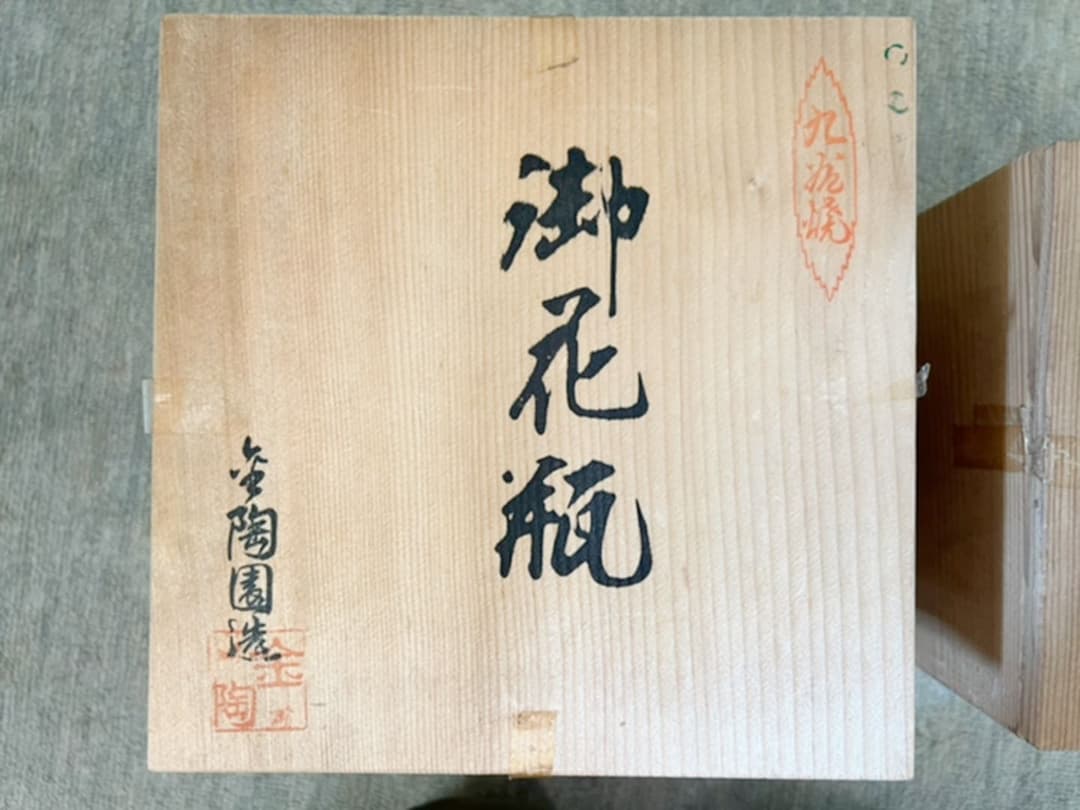 九谷焼
御花瓶
金陶園造
金
陶